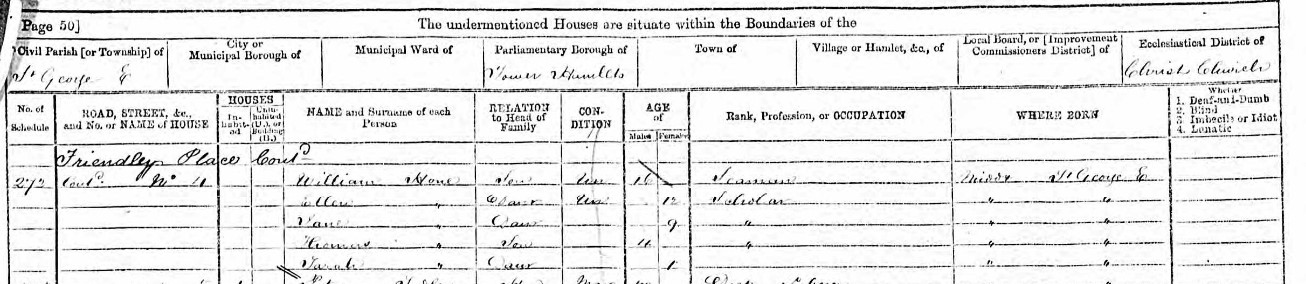 Page 50]
The undermentioned Houses are situate within the Boundaries of the
Civil Parish [or Township] of City or Municipal Borough of Municipal Ward of Parliamentary Borough of Town of Village or Hamlet, &c., of Local Board, or [Improvement Commissioners District] of Ecclesiastical District of
St George E Tower Hamlets Christ Church
No. of Schedule ROAD, STREET, &c., and No. or NAME of HOUSE HOUSES In-habited Uninhabited (U.), or Building (B.) NAME and Surname of each Person RELATION to Head of Family CON-DITION AGE of Males Females Rank, Profession, or OCCUPATION WHERE BORN Whether 1. Deaf-and-Dumb 2. Blind 3. Imbecile or Idiot 4. Lunatic
Friendley Place Contd
272 Contd No 4 William Hone Son Un 16 Seaman Middx St George E
Ellen " Daur Un 12 Scholar " "
Jane " Daur 9 " " "
Thomas " Son 4 " " "
Sarah " Daur 1 " "